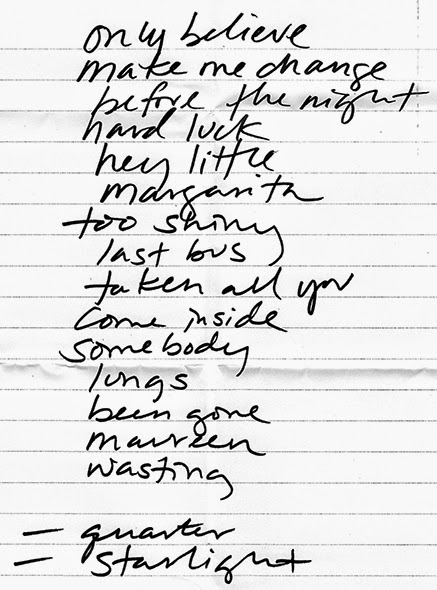 only believe
make me change
before the night
hard luck
hey little
margarita
too shiny
last bus
taken all you
come inside
somebody
lungs
been gone
maureen
wasting
— quarter
— starlight